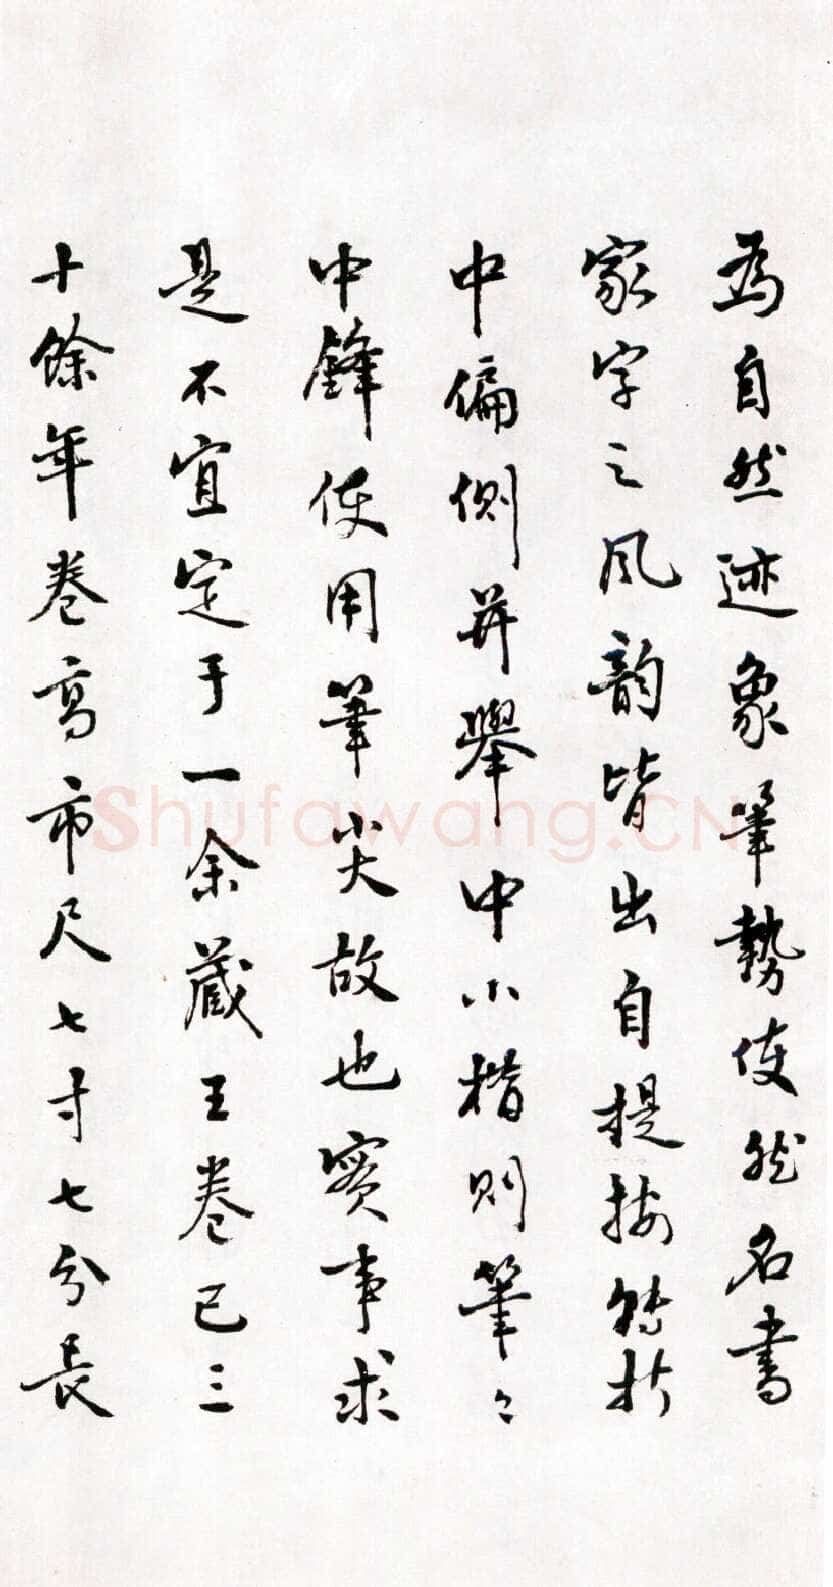 為自然迹象筆勢使然名書
家字之風韵皆出自提按轉折
中偏側并舉中小楷則筆々
中鋒使用筆尖故也實事求
是不宜定于一余藏王卷已三
十餘年卷高市尺七寸七分長
Shufawang.CN